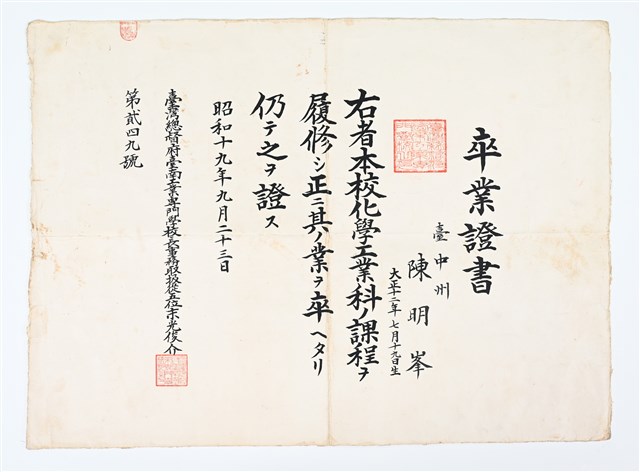 卒業證書
臺中州
陳明峯
大正十二年七月十九日生
右者本校化學工業科ノ課程ヲ
履修シ正ニ其ノ業ヲ卒ヘタリ
仍テ之ヲ證ス
昭和十九年九月二十三日
臺灣總督府臺南工業專門學校長事務取扱從五位末光俊介
第貳四九號